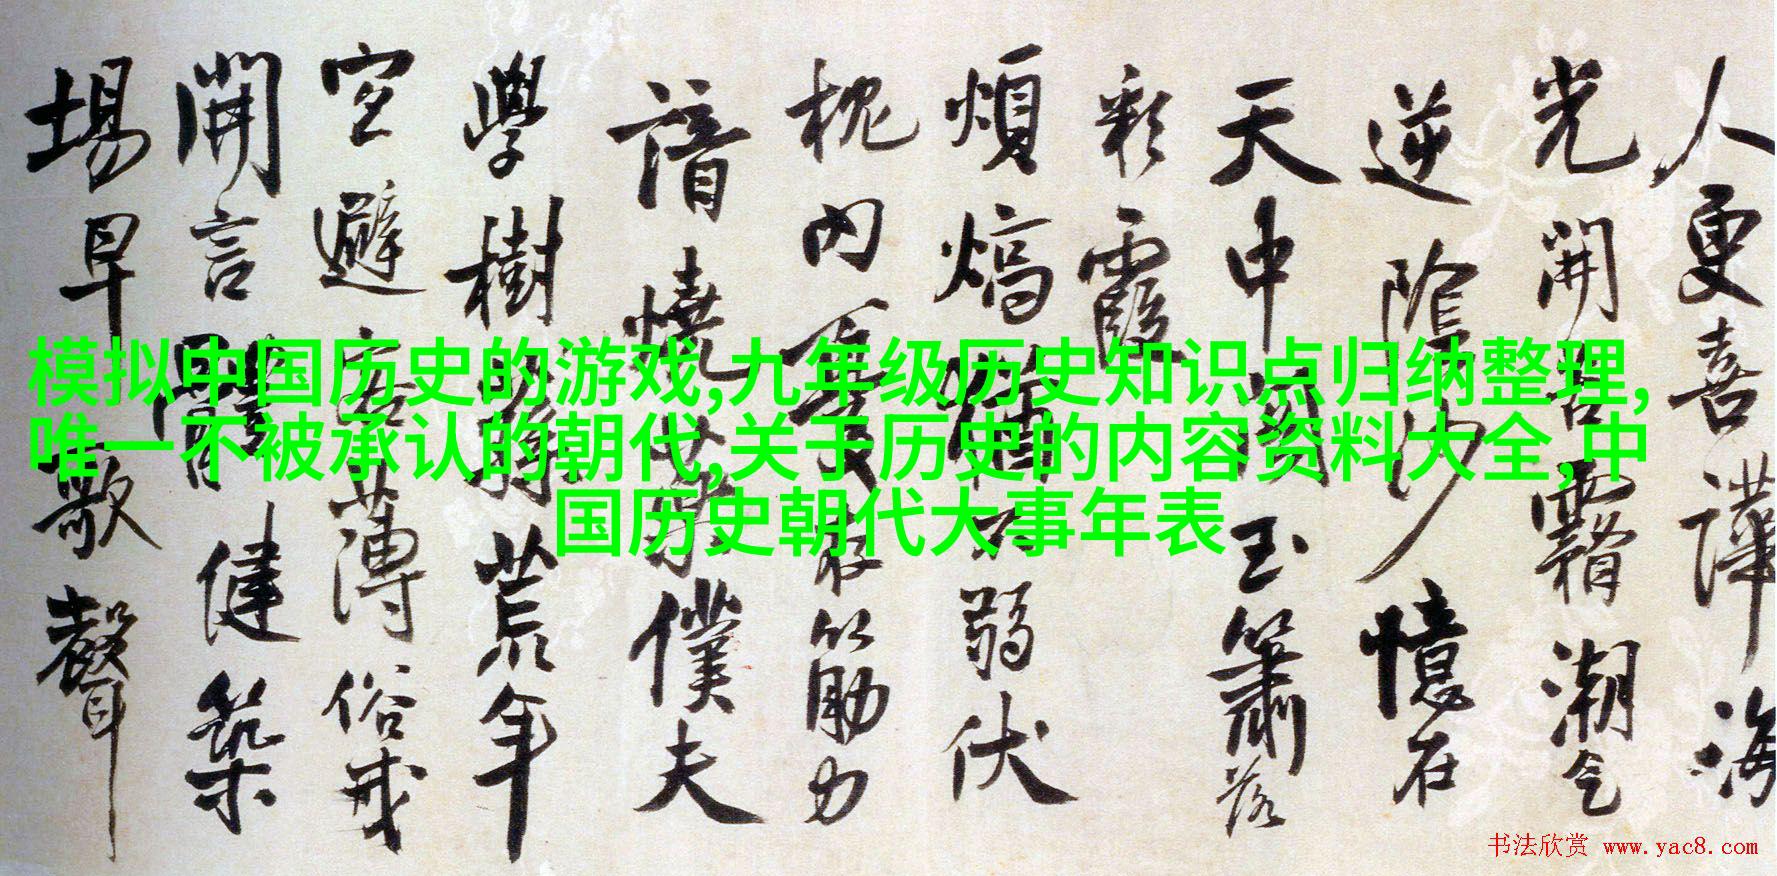 模拟中国历史的游戏,九年级历史知识点归纳整理,
唯一不被承认的朝代,关于历史的内容资料大全,中
国历史朝代大事年表
人更喜譁海
光開
霧潮气
逆陰沙憶在
天中
玉簫落
彩霞
煩熇
弱伏
枕内
衰筋力
諳燒
僕夫
學樹
荒年
空避
薄俗或
開言
健築
場早
歌聲
书法欣赏 www.yac8.com